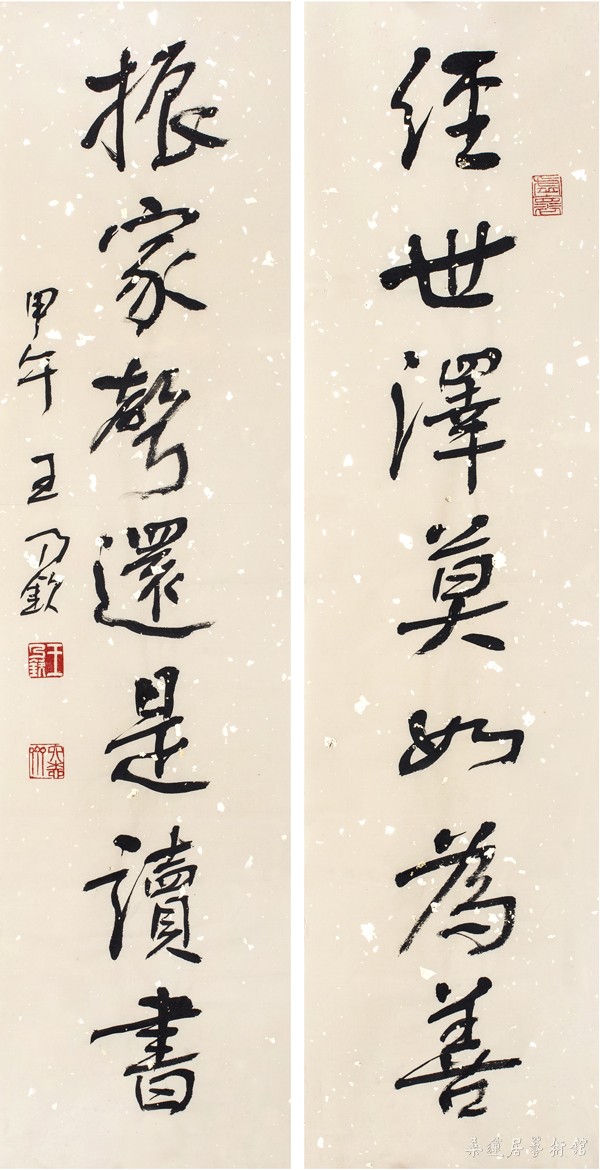 经世澤莫如為善
振家聲還是讀書
甲午 王乃欽
王乃欽